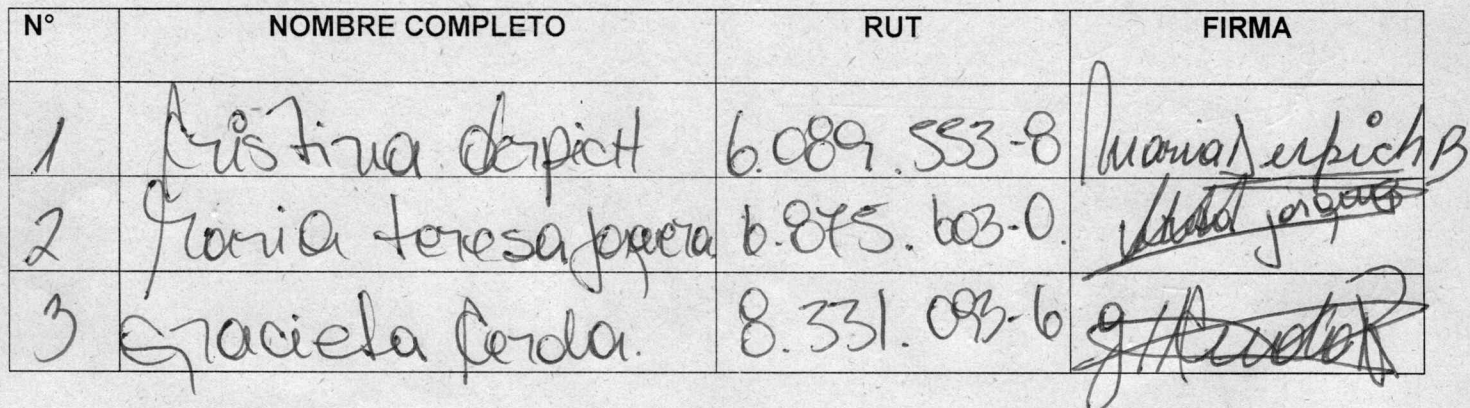 N° NOMBRE COMPLETO RUT FIRMA
1 Cristina derpicH 6.089.553-8 Maria Derpich B
2 Maria teresa Jorquera 6.875.603-0.
3 Graciela Cerda. 8.331.093-6